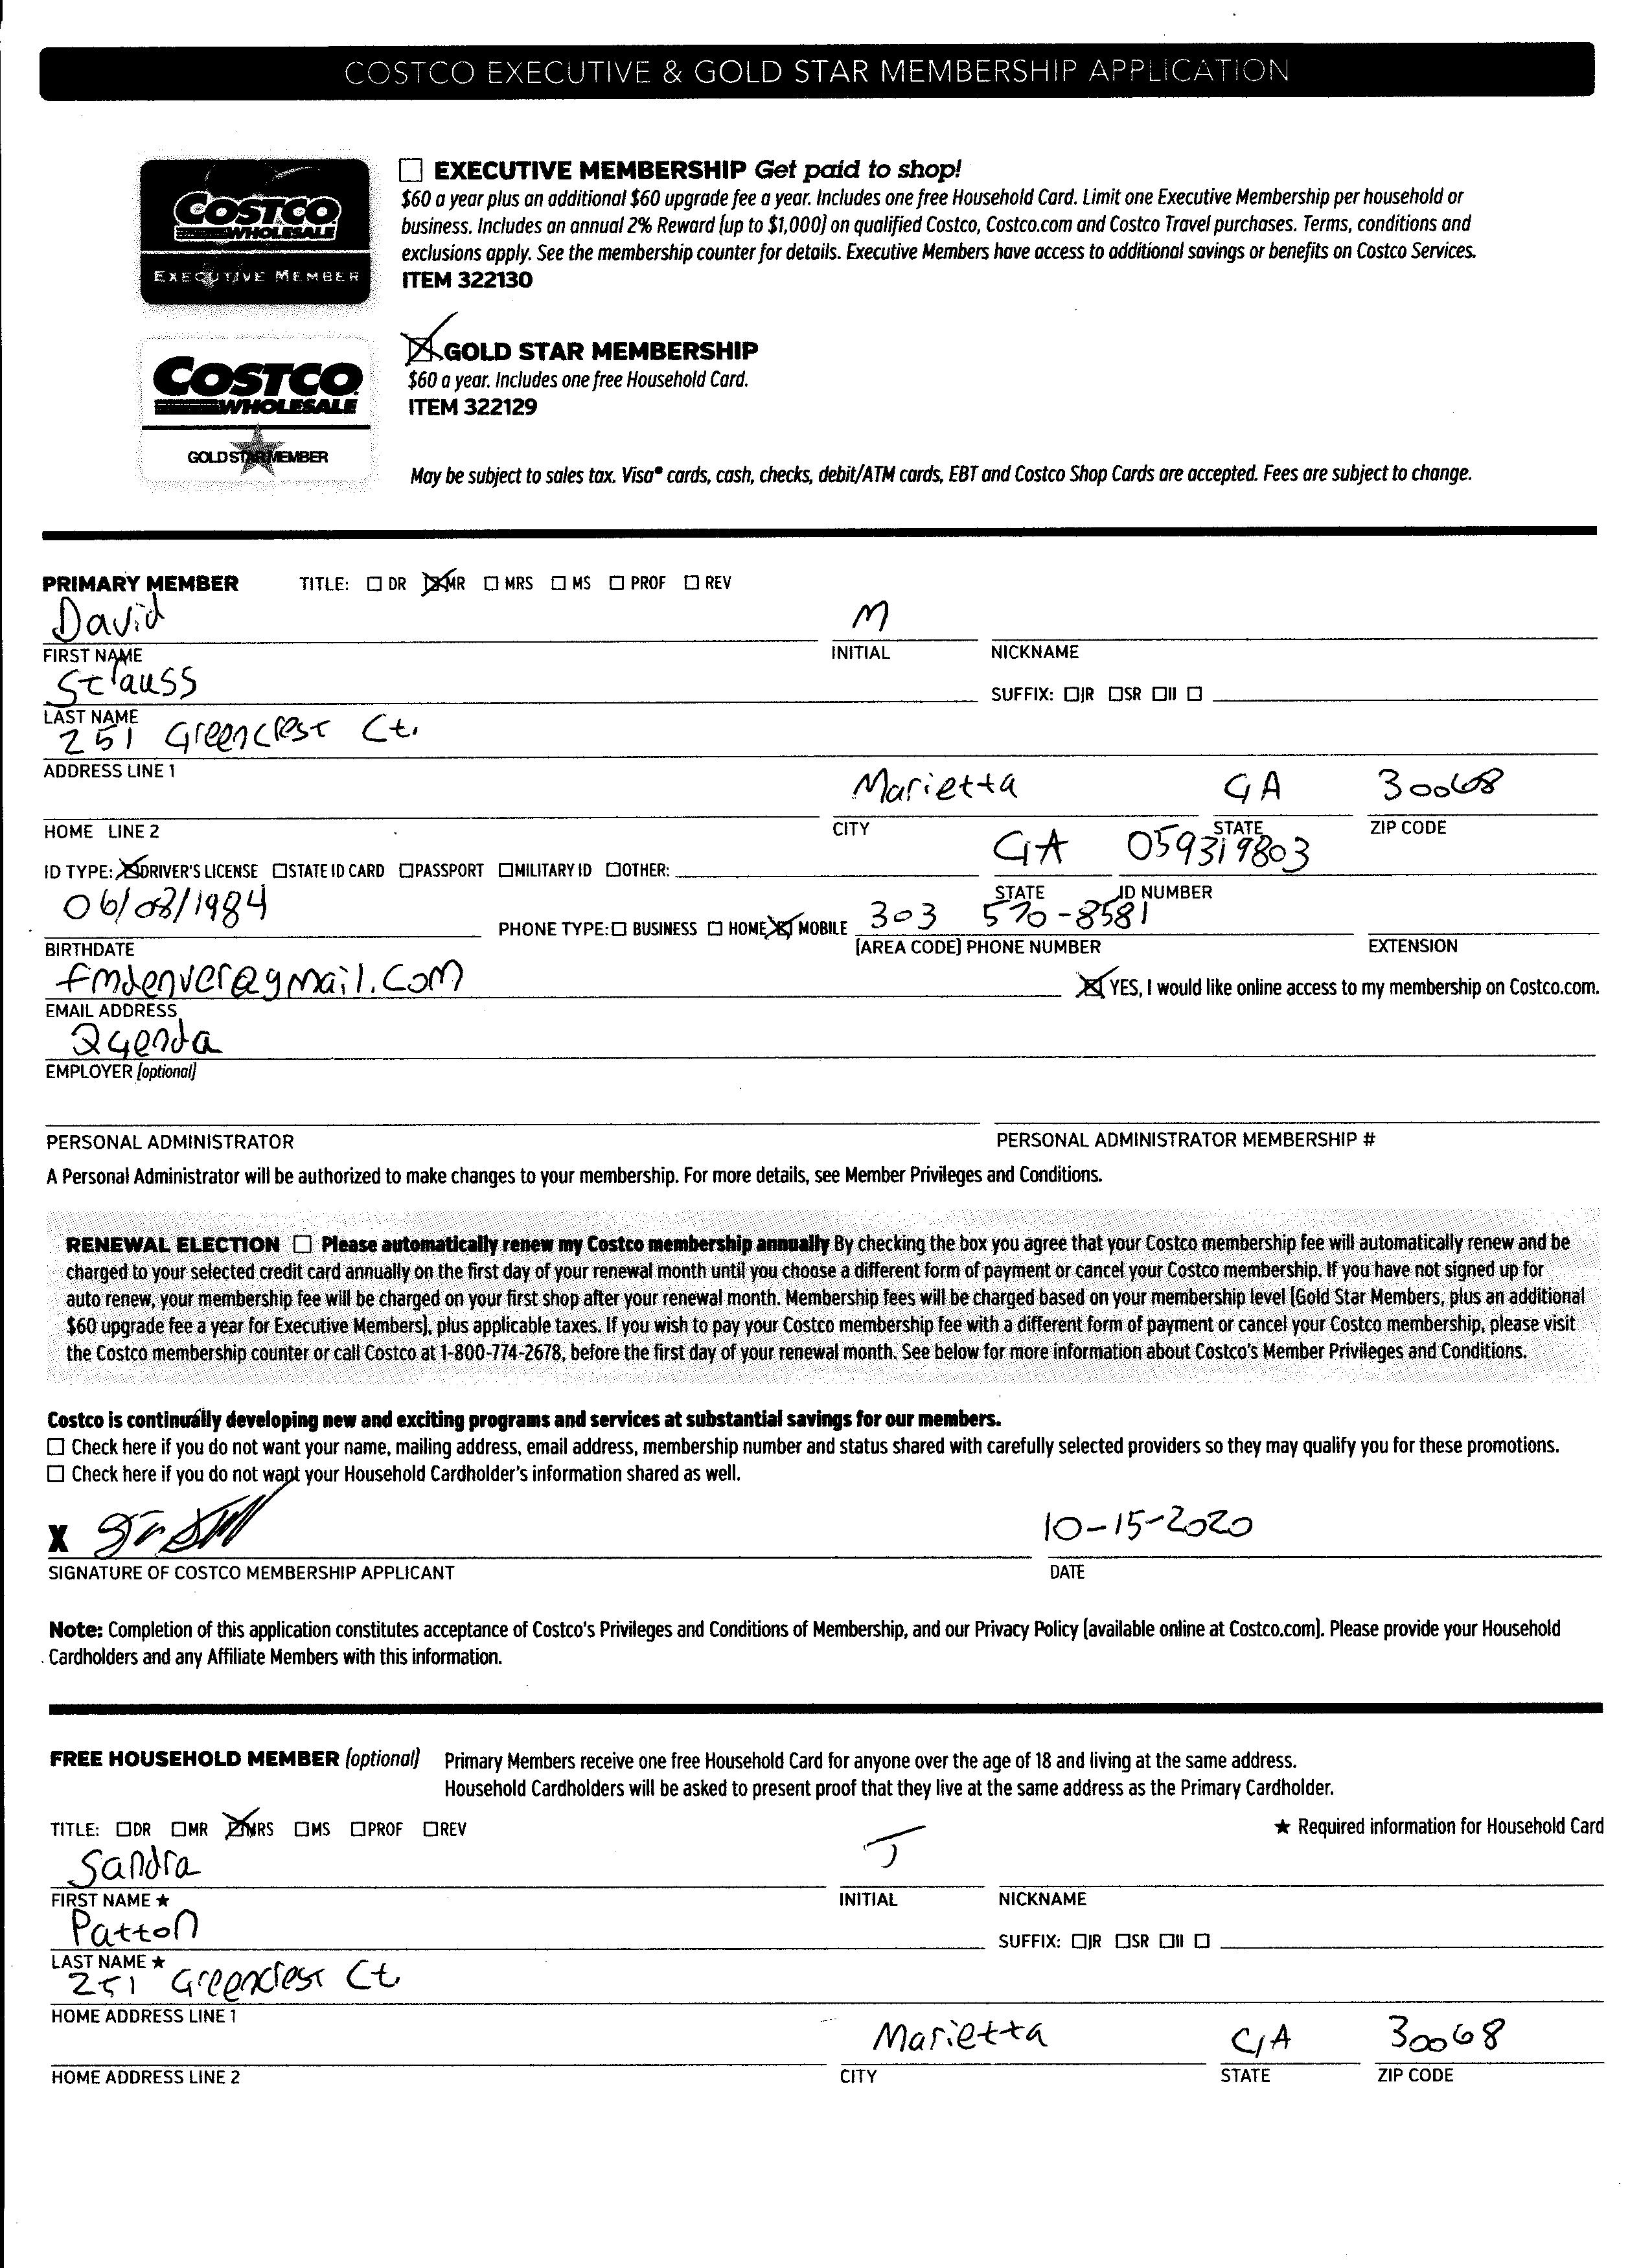 COSTCO EXECUTIVE & GOLD STAR MEMBERSHIP APPLICATION
COSTCO
WHOLESALE
EXECUTIVE MEMBER
☐ EXECUTIVE MEMBERSHIP Get paid to shop!
$60 a year plus an additional $60 upgrade fee a year. Includes one free Household Card. Limit one Executive Membership per household or
business. Includes an annual 2% Reward (up to $1,000) on qualified Costco, Costco.com and Costco Travel purchases. Terms, conditions and
exclusions apply. See the membership counter for details. Executive Members have access to additional savings or benefits on Costco Services.
ITEM 322130
COSTCO
WHOLESALE
GOLD STAR MEMBER
☒ GOLD STAR MEMBERSHIP
$60 a year. Includes one free Household Card.
ITEM 322129
May be subject to sales tax. Visa® cards, cash, checks, debit/ATM cards, EBT and Costco Shop Cards are accepted. Fees are subject to change.
PRIMARY MEMBER TITLE: ☐ DR ☒ MR ☐ MRS ☐ MS ☐ PROF ☐ REV
David M
FIRST NAME INITIAL NICKNAME
Strauss SUFFIX: ☐JR ☐SR ☐II ☐
LAST NAME
251 Greencrest Ct.
ADDRESS LINE 1
Marietta GA 30068
HOME LINE 2 CITY STATE ZIP CODE
ID TYPE: ☒DRIVER'S LICENSE ☐STATE ID CARD ☐PASSPORT ☐MILITARY ID ☐OTHER: GA 059319803
STATE ID NUMBER
06/08/1984 PHONE TYPE: ☐ BUSINESS ☐ HOME ☒ MOBILE 303 570-8581
BIRTHDATE (AREA CODE) PHONE NUMBER EXTENSION
fmdenver@gmail.com ☒ YES, I would like online access to my membership on Costco.com.
EMAIL ADDRESS
QGenda
EMPLOYER (optional)
PERSONAL ADMINISTRATOR PERSONAL ADMINISTRATOR MEMBERSHIP #
A Personal Administrator will be authorized to make changes to your membership. For more details, see Member Privileges and Conditions.
RENEWAL ELECTION ☐ Please automatically renew my Costco membership annually By checking the box you agree that your Costco membership fee will automatically renew and be
charged to your selected credit card annually on the first day of your renewal month until you choose a different form of payment or cancel your Costco membership. If you have not signed up for
auto renew, your membership fee will be charged on your first shop after your renewal month. Membership fees will be charged based on your membership level (Gold Star Members, plus an additional
$60 upgrade fee a year for Executive Members), plus applicable taxes. If you wish to pay your Costco membership fee with a different form of payment or cancel your Costco membership, please visit
the Costco membership counter or call Costco at 1-800-774-2678, before the first day of your renewal month. See below for more information about Costco's Member Privileges and Conditions.
Costco is continually developing new and exciting programs and services at substantial savings for our members.
☐ Check here if you do not want your name, mailing address, email address, membership number and status shared with carefully selected providers so they may qualify you for these promotions.
☐ Check here if you do not want your Household Cardholder's information shared as well.
X 10-15-2020
SIGNATURE OF COSTCO MEMBERSHIP APPLICANT DATE
Note: Completion of this application constitutes acceptance of Costco's Privileges and Conditions of Membership, and our Privacy Policy (available online at Costco.com). Please provide your Household
Cardholders and any Affiliate Members with this information.
FREE HOUSEHOLD MEMBER (optional) Primary Members receive one free Household Card for anyone over the age of 18 and living at the same address.
Household Cardholders will be asked to present proof that they live at the same address as the Primary Cardholder.
TITLE: ☐DR ☐MR ☒MRS ☐MS ☐PROF ☐REV ★ Required information for Household Card
Sandra J
FIRST NAME ★ INITIAL NICKNAME
Patton SUFFIX: ☐JR ☐SR ☐II ☐
LAST NAME ★
251 Greencrest Ct
HOME ADDRESS LINE 1
Marietta GA 30068
HOME ADDRESS LINE 2 CITY STATE ZIP CODE